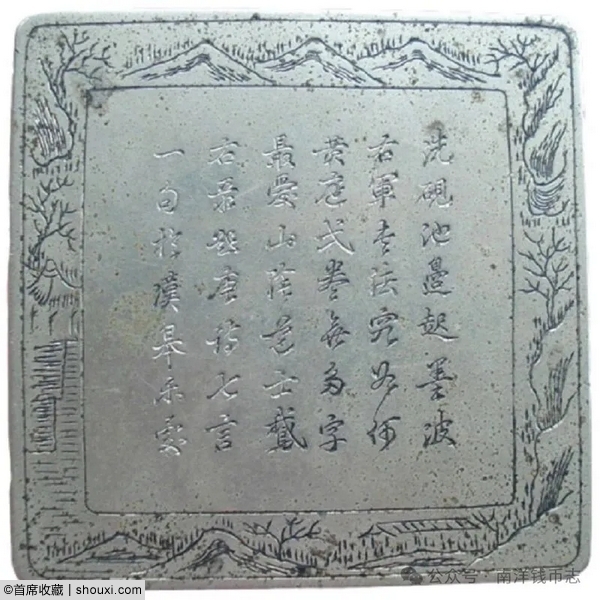 洗硯池邊起墨波
右軍書法究如何
黄庭弌卷無多字
最愛山陰道士鵞
右唐詩七言
一於漢皋
公众号·南洋钱币志
©首席收藏 | shouxi.com